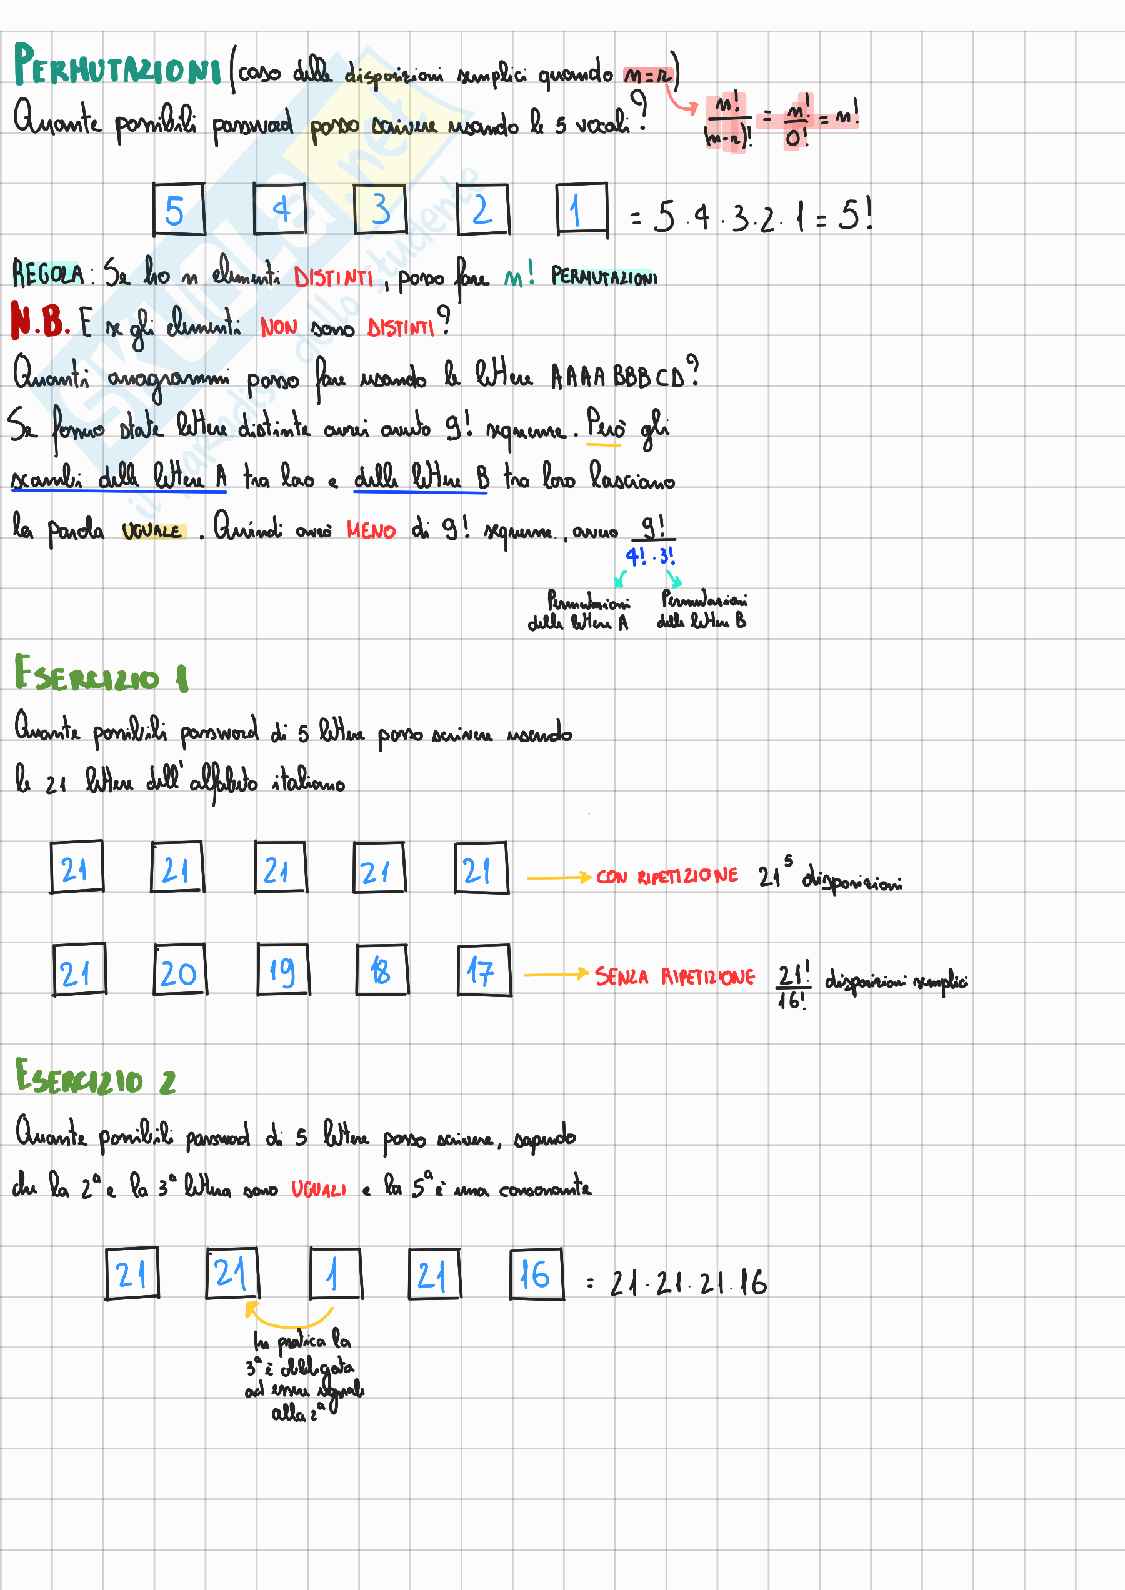 PERMUTAZIONI (caso delle disposizioni semplici quando n=r)
Quante possibili password posso scrivere usando le 5 vocali? n!/(n-r)! = n!/0! = n!
5 4 3 2 1 = 5·4·3·2·1 = 5!
REGOLA: Se ho n elementi DISTINTI, posso fare n! PERMUTAZIONI
N.B. E se gli elementi NON sono DISTINTI?
Quanti anagrammi posso fare usando le lettere AAAABBBCD?
Se fossero state lettere distinte avrei avuto 9! sequenze. Però gli
scambi delle lettere A tra loro e delle lettere B tra loro lasciano
la parola UGUALE. Quindi avrò MENO di 9! sequenze, avremo 9!/4!·3!
Permutazioni Permutazioni
delle lettere A delle lettere B
ESERCIZIO 1
Quante possibili password di 5 lettere posso scrivere usando
le 21 lettere dell'alfabeto italiano
21 21 21 21 21 → CON RIPETIZIONE 21⁵ disposizioni
21 20 19 18 17 → SENZA RIPETIZIONE 21!/16! disposizioni semplici
ESERCIZIO 2
Quante possibili password di 5 lettere posso scrivere, sapendo
che la 2ª e la 3ª lettera sono UGUALI e la 5ª è una consonante
21 21 1 21 16 = 21·21·21·16
In pratica la
3ª è obbligata
ad essere uguale
alla 2ª